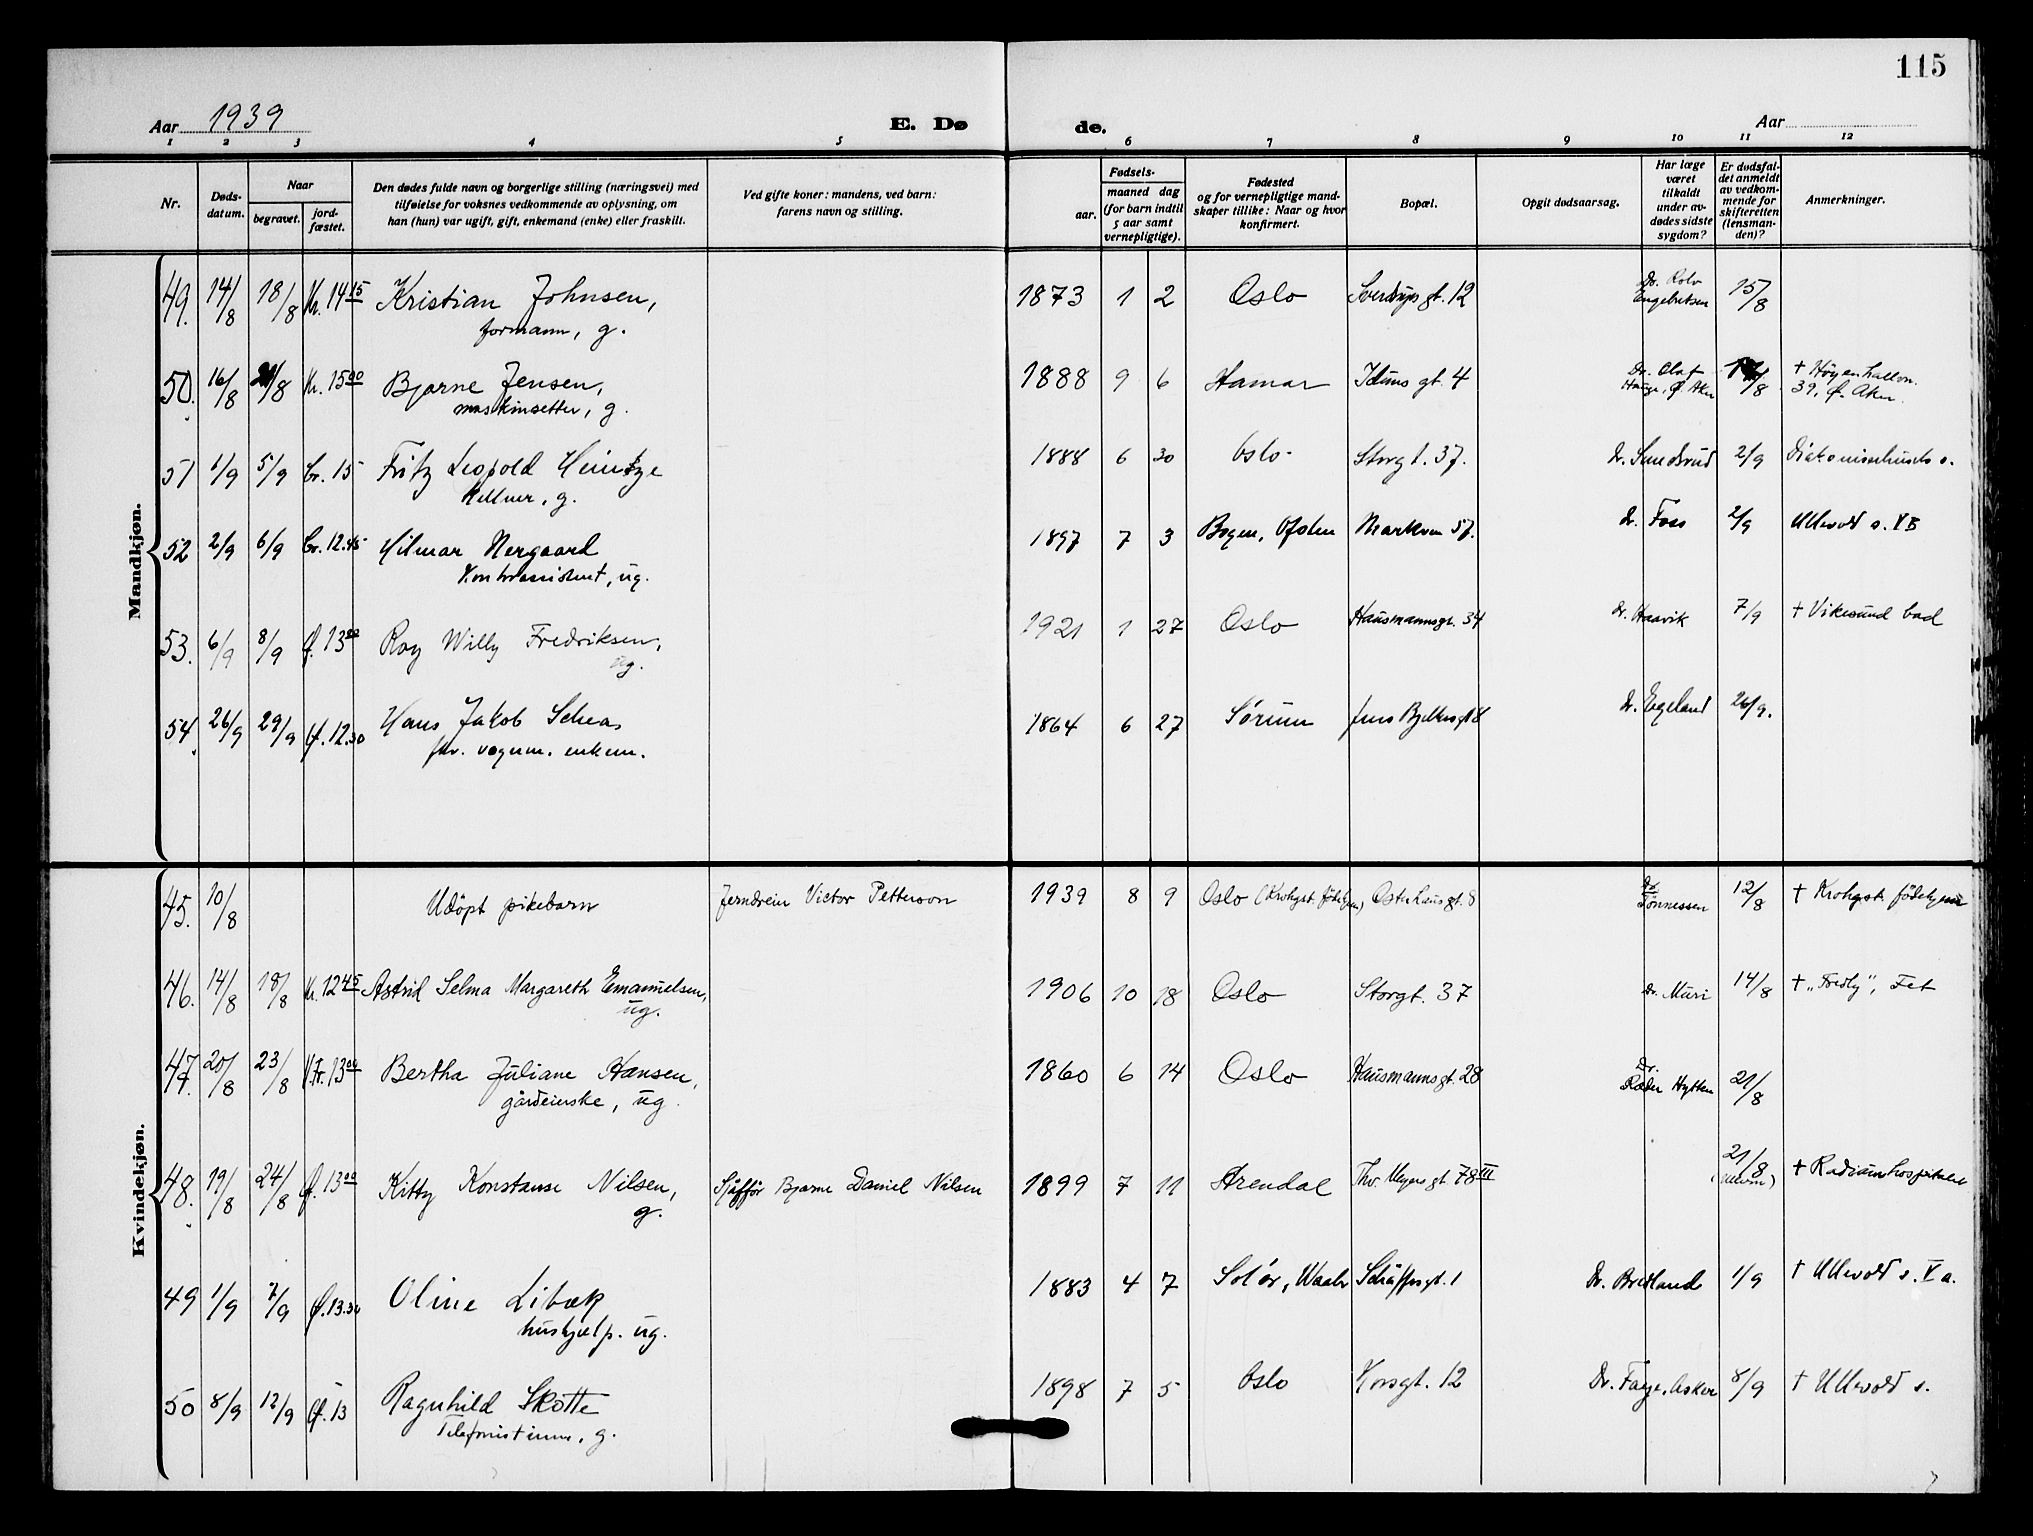 115
Aar 1939 E. Dø de. Aar
1 2 3 4 5 6 7 8 9 10 11 12
Nr.
Døds-
datum.
Naar
begravet.
jord-
fæstet.
Den dødes fulde navn og borgerlige stilling (næringsvei) med
tilføielse for voksnes vedkommende av oplysning, om
han (hun) var ugift, gift, enkemand (enke) eller fraskilt.
Ved gifte koner: mandens, ved barn:
farens navn og stilling.
Fødsels-
aar.
maaned dag
(for barn indtil
5 aar samt
vernepligtige).
Fødested
og for vernepligtige mand-
skaper tillike: Naar og hvor
konfirmert.
Bopæl.
Opgit dødsaarsag.
Har læge
været
tilkaldt
under av-
dødes sidste
sygdom?
Er dødsfal-
det anmeldt
av vedkom-
mende for
skifteretten
(lensman-
den)?
Anmerkninger.
Mandkjøn.
49. 14/8 18/8 Kr. 14 15 Kristian Johnsen, 1873 1 2 Oslo Sverdrups gt. 12 Dr. Rolv 15/8
formann, g. Engebretsen
50. 16/8 /8 Kr. 15 00 Bjarne Jensen, 1888 9 6 Hamar Iduns gt. 4 Dr. Olaf /8 + Høyenhallvn.
maskinsetter, g. Hauge, Ø. Aker 39, Ø. Aker
51 1/9 5/9 Cr. 15 Fritz Leopold Heintze 1888 6 30 Oslo Storgt. 37. Dr. Sundsrud 2/9 Diakonissehusets s.
Kellner, g.
52 2/9 6/9 Cr. 12.45 Hilmar Nergaard 1897 7 3 Bogen, Ofoten Markvn 57. Dr. Foss 2/9 Ullevold s. VB
Kontorassistent, ug.
53. 6/9 8/9 Ø. 13 Roy Willy Fredriksen, 1921 1 27 Oslo Hausmannsgt. 34 Dr. Haavik 7/9 + Vikesund bad
ug.
54. 26/9 29/9 Ø. 12.30 Hans Jakob 1864 6 27 Sørum Jens Bjelkesgt 8 Dr. Egeland 26/9.
fhv. vognm. enkem.
Kvindekjøn.
45. 10/8 Udöpt pikebarn Jerndreier Victor Petterson 1939 8 9 Oslo (Krohgst. fødehjem) Osterhausgt. 8 Dr. Tönnessen 12/8 + Krohgst. fødehjem
46. 14/8 18/8 Kr. 12 45 Astrid Selma Margareth Emanuelsen, 1906 10 18 Oslo Storgt. 37 Dr. Muri 14/8 + "Fredly", Fet
ug.
47. 20/8 23/8 V.Kr. 13 00 Bertha Juliane Hansen, 1860 6 14 Oslo Hausmannsgt. 28 Dr. Ræder Hytten 21/8
gårdeierske, ug.
48. 19/8 24/8 Ø. 13 00 Kitty Konstanse Nilsen, Sjåfför Bjarne Daniel Nilsen 1899 7 11 Arendal Thv. Meyers gt 78 III 21/8 + Radiumhospitalet
g.
49 1/9 7/9 Ø. 13.30 Oline Libæk 1883 4 7 Solør, Waaler Schäffersgt. 1 Dr. Bredland 1/9 + Ullevold s. V a.
hushjelp. ug.
50 8/9 12/9 Ø. 13 Ragnhild Skotte 1898 7 5 Oslo Korsgt. 12 Dr. Faye, Asker 8/9 + Ullevold s.
Telefonistinne, g.